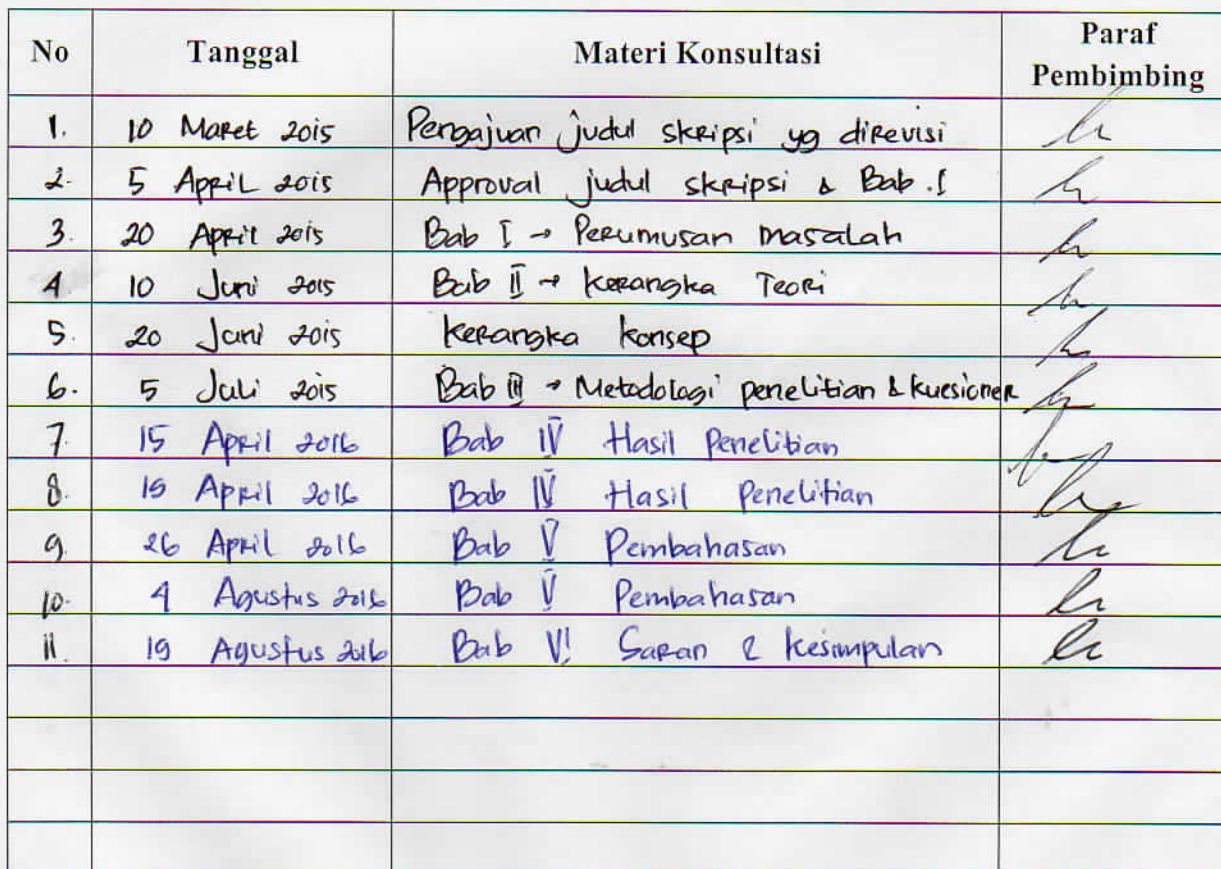 No Tanggal Materi Konsultasi Paraf Pembimbing
1. 10 Maret 2015 Pengajuan judul skripsi yg direvisi
2. 5 April 2015 Approval judul skripsi & Bab.I
3. 20 April 2015 Bab I → Perumusan masalah
4 10 Juni 2015 Bab II → Kerangka Teori
5. 20 Juni 2015 Kerangka Konsep
6. 5 Juli 2015 Bab III → Metodologi penelitian & kuesioner
7. 15 April 2016 Bab IV Hasil Penelitian
8. 19 April 2016 Bab IV Hasil Penelitian
9. 26 April 2016 Bab V Pembahasan
10. 4 Agustus 2016 Bab V Pembahasan
11. 19 Agustus 2016 Bab VI Saran & Kesimpulan